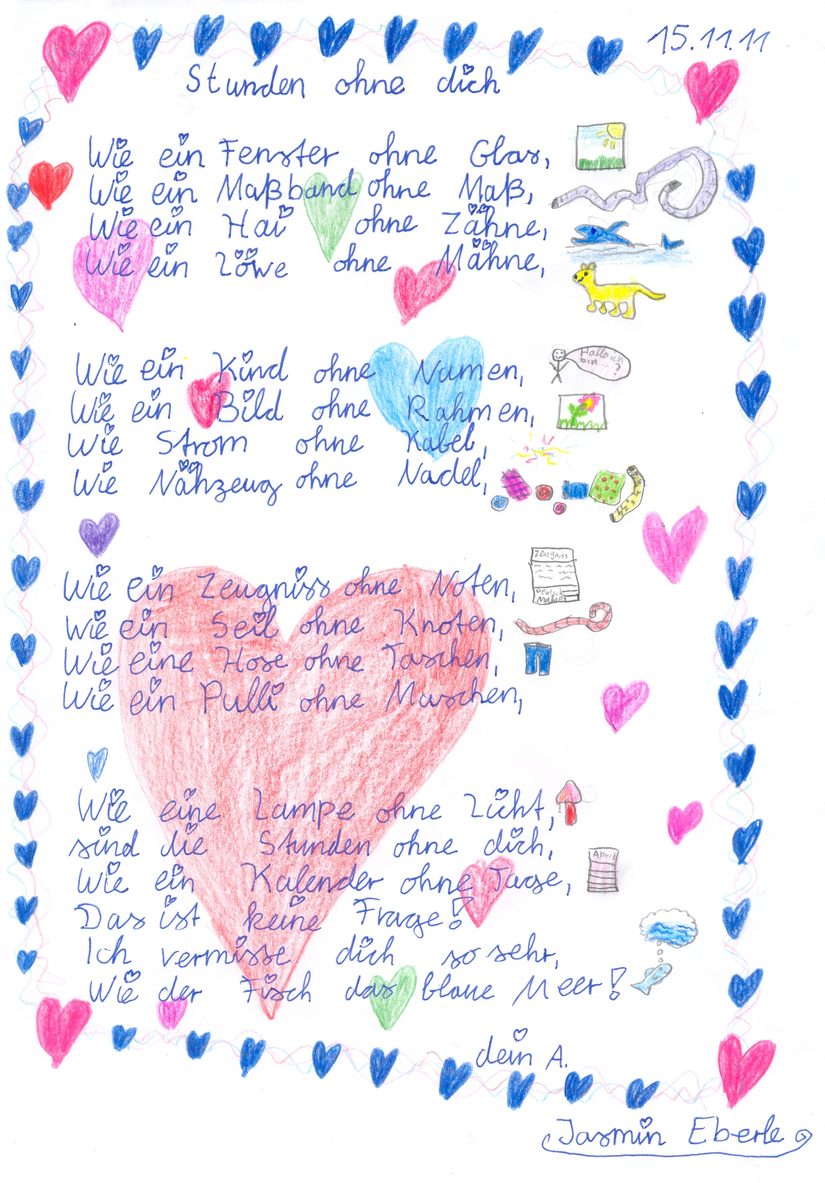 15.11.11
Stunden ohne dich
Wie ein Fenster ohne Glas,
Wie ein Maßband ohne Maß,
Wie ein Hai ohne Zähne,
Wie ein Löwe ohne Mähne,
Wie ein Kind ohne Namen,
Hallo ich
bin...?
Wie ein Bild ohne Rahmen,
Wie Strom ohne Kabel,
Wie Nähzeug ohne Nadel,
Wie ein Zeugniss ohne Noten,
Zeugniss
Deutsch
Mathe
Wie ein Seil ohne Knoten,
Wie eine Hose ohne Taschen,
Wie ein Pulli ohne Maschen,
Wie eine Lampe ohne Licht,
sind die Stunden ohne dich,
Wie ein Kalender ohne Tage,
April
Das ist keine Frage!
Ich vermisse dich so sehr,
Wie der Fisch das blaue Meer!
dein A.
Jasmin Eberle